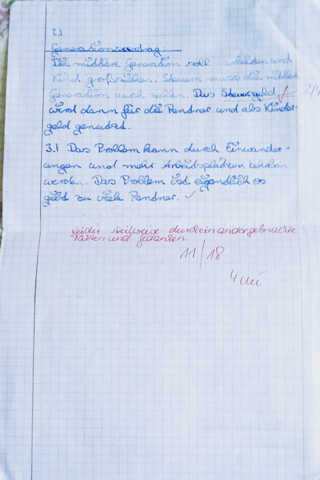 2.1
Generationsvertrag:
Die mittlere Generation soll arbeiten und
Kind großziehen. Steuern muss die mittlere
Generation auch zahlen. Das Steuergeld
wird dann für die Rendner und als Kinder-
geld genutzt.
3.1 Das Problem kann durch Einwander-
ungen und mehr Arbeitsplätzen behoben
werden. Das Problem ist eigendlich es
gibt zu viele Rendner. ✓
Leider teilweise durcheinandergebrachte
Fakten und Gedanken.
11/18